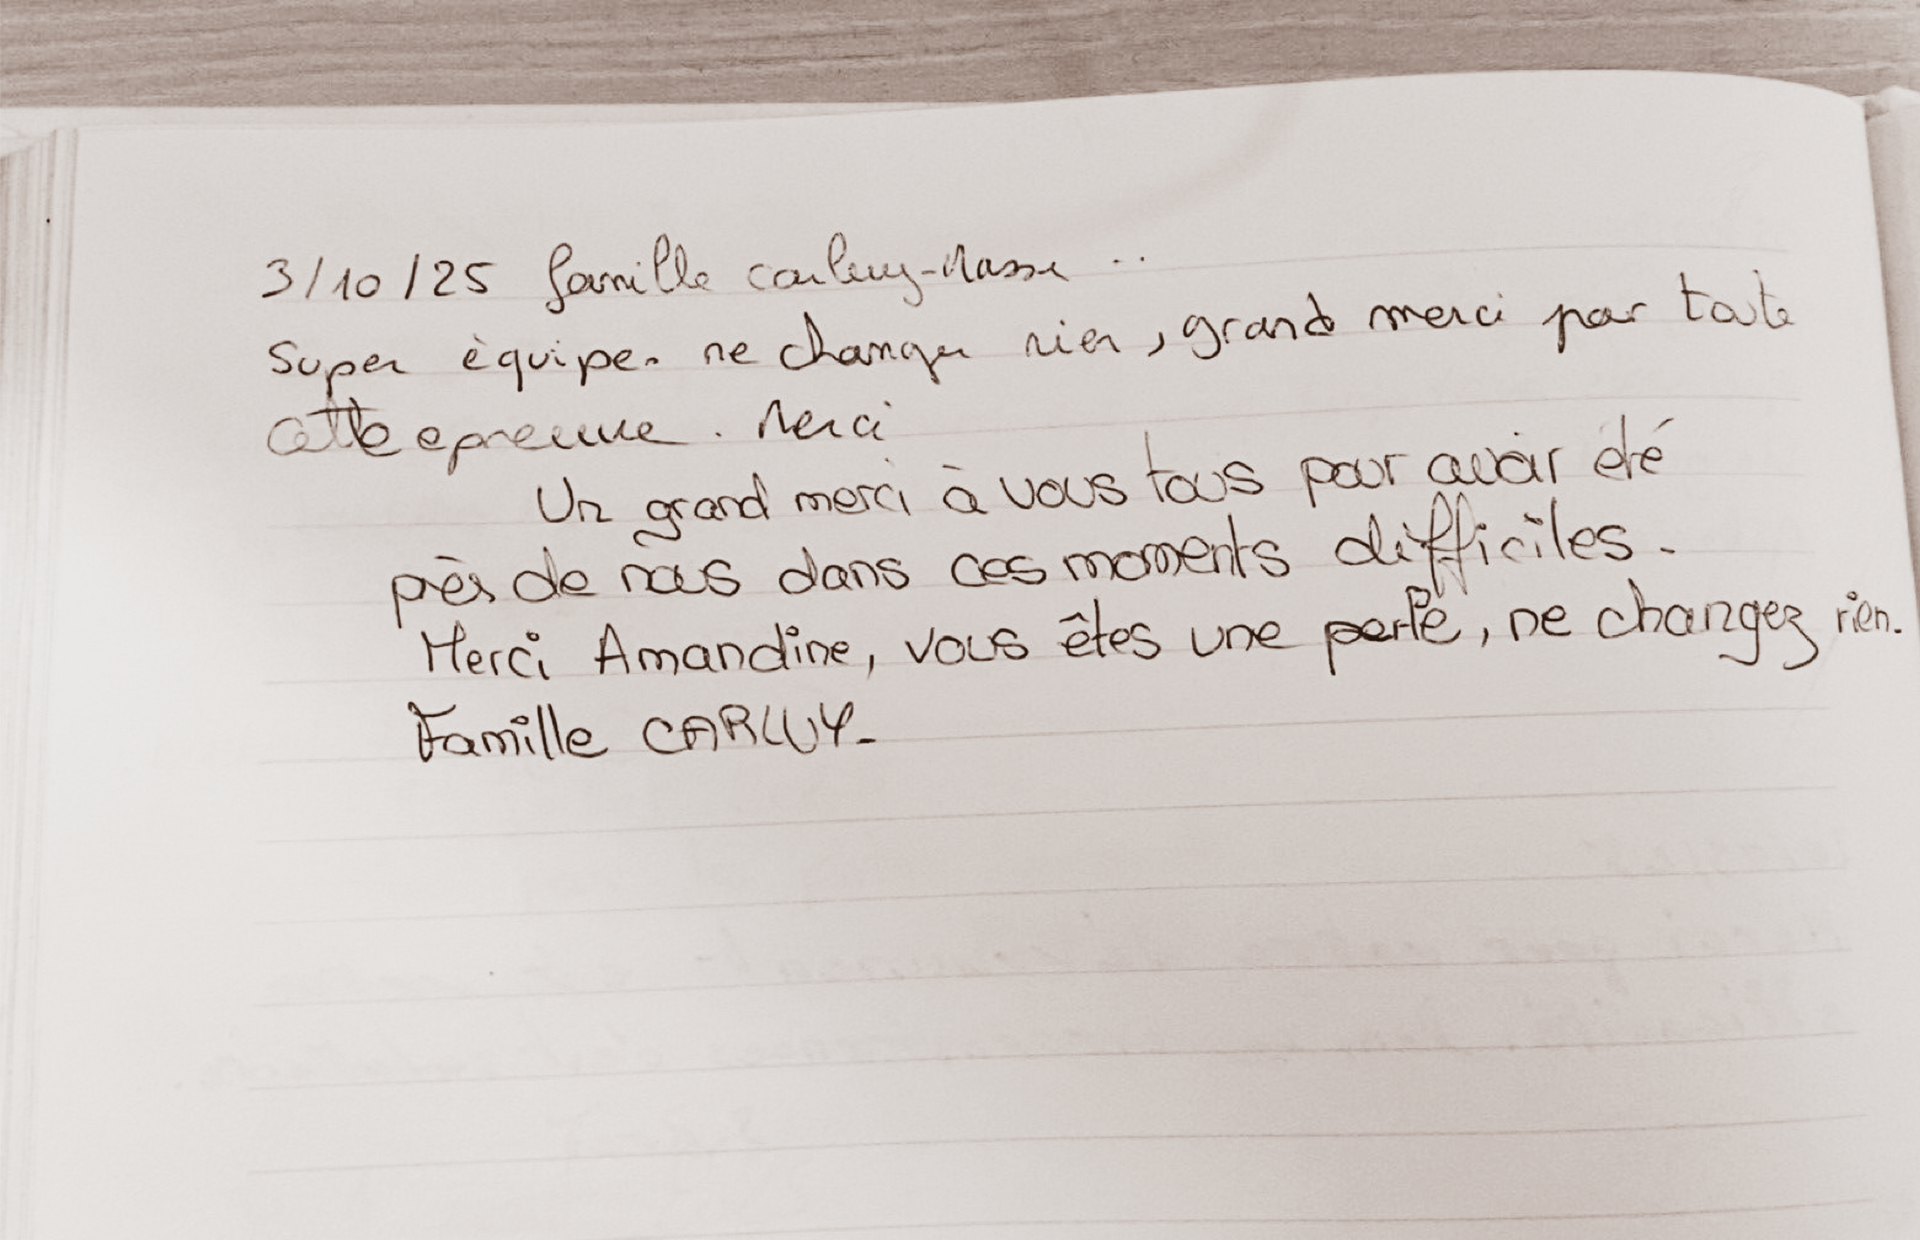 3/10/25 famille carluy-Masse ..
Super équipe. ne changer rien, grand merci par toute
cette epreuve. Merci
Un grand merci à vous tous pour avoir été
près de nous dans ces moments difficiles.
Merci Amandine, vous êtes une perle, ne changez rien.
Famille CARLUY.